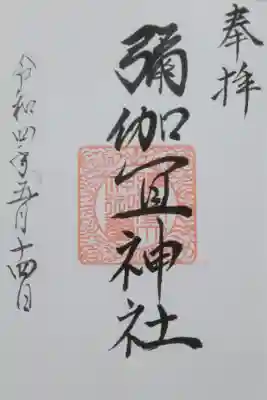 奉拝
彌伽宜神社
令和四年五月十四日